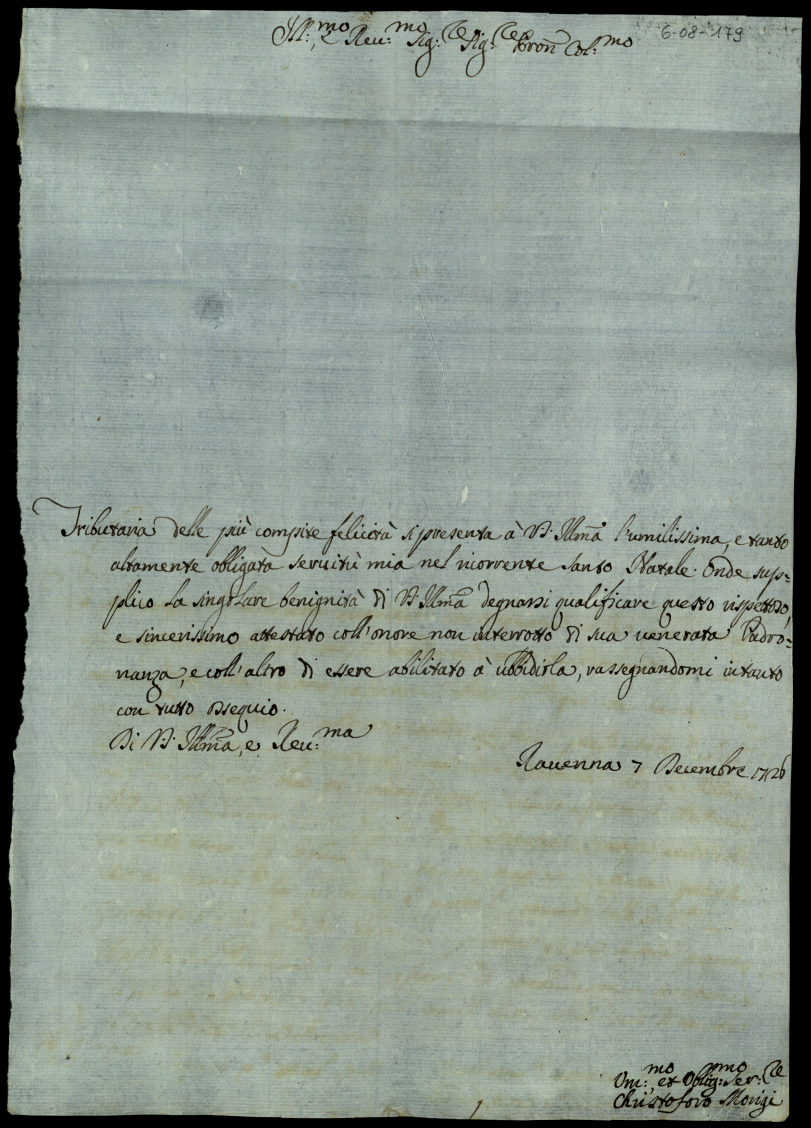 6-08-179
Ill:mo, e Reu:mo Sig:re Sig:re Pron Col:mo
Tributaria delle più compite felicità si presenta à V.S. Illma l'umilissima, e tanto
altamente obligata seruitù mia nel ricorrente Santo Natale. Onde sup=
plico la singolare benignità di V.S. Illma degnarsi qualificare questo rispettoso,
e sincerissimo attestato coll'onore non interrotto di sua uenerata Padro=
nanza, e coll'altro di essere abilitato à ubbidirla, rassegnandomi intanto
con tutto ossequio.
Di V.S. Illma, e Reu:ma
Rauenna 7 Decembre 1726
Um:mo et Oblig:mo Ser:re
Christoforo Morigi